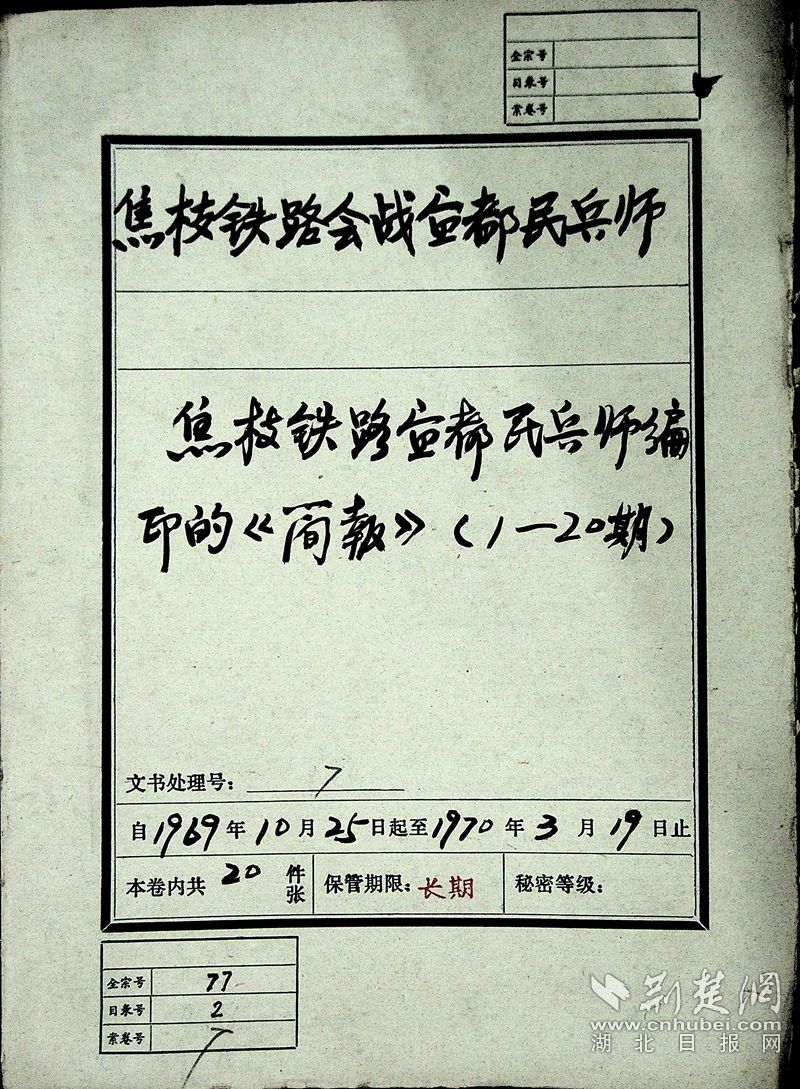 全宗号
目录号
案卷号
焦枝铁路会战宜都民兵师
焦枝铁路宜都民兵师编
印的《简报》(1—20期)
文书处理号： 7
自1969年10月25日起至1970年3月19日止
本卷内共 20 件张
保管期限：长期
秘密等级：
全宗号 77
目录号 2
案卷号 7
荆楚网
www.cnhubei.com
湖北日报网